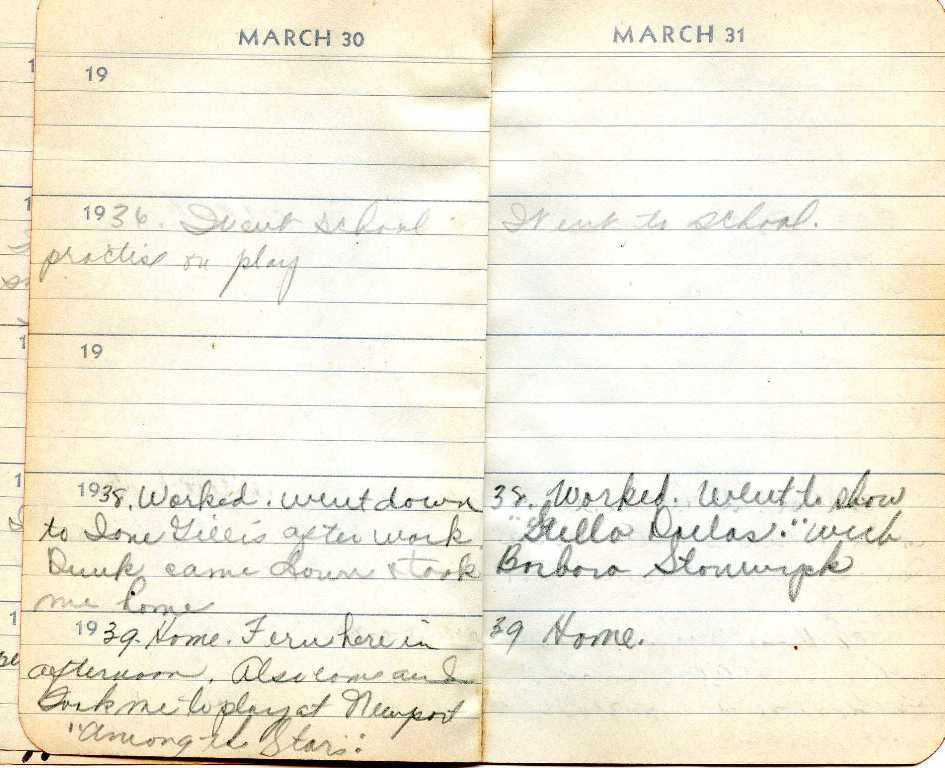 MARCH 30
19
1936. Went school
practise on play
19
1938. Worked. went down
to Ione Gillis after work.
Dunk came down & took
me home
1939. Home. Fern here in
afternoon. Also came and
took me to play at Newport
"Among the Stars."
MARCH 31
Went to school.
38. Worked. Went to show
"Stella Dallas." with
Barbara Stanwyck
39 Home.